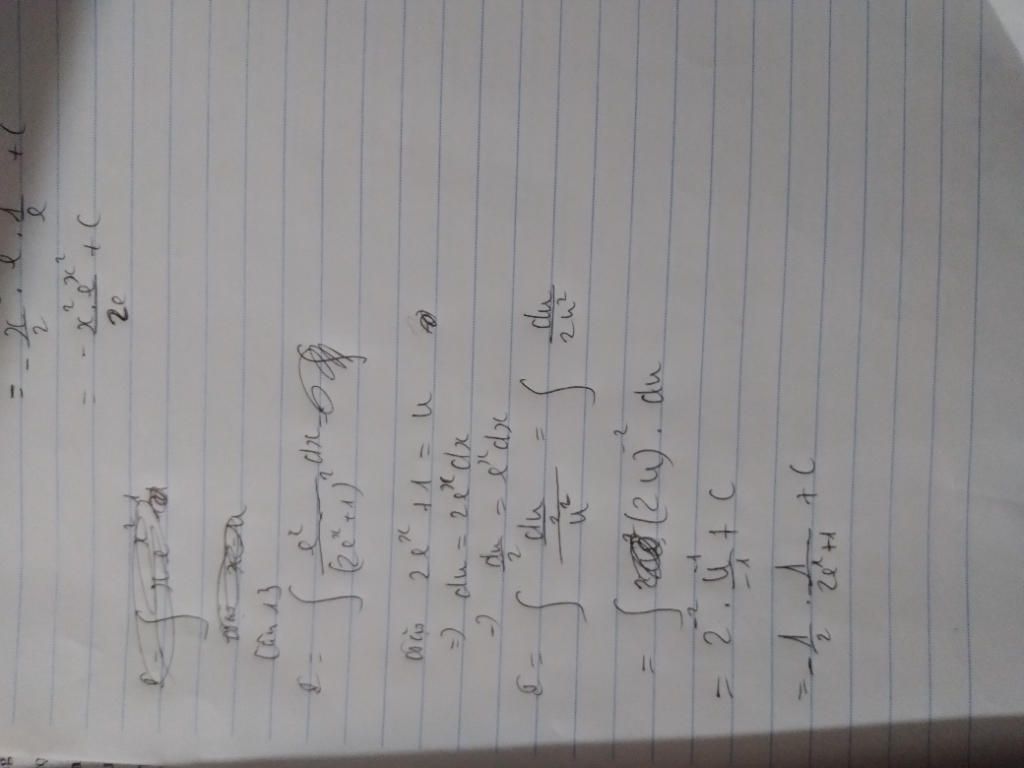 = - x/2 · e · 1/e + C
= - x² e^x² / 2e + C
Câu 13
I = ∫ e^x / (2e^x + 1)² dx
Đặt 2e^x + 1 = u
=> du = 2e^x dx
-> du/2 = e^x dx
I = ∫ (du/2)/u² = ∫ du/2u²
= ∫ (2u)^-2 . du
= 2^-2 . u^-1/-1 + C
= - 1/2 . 1/2e^x+1 + C